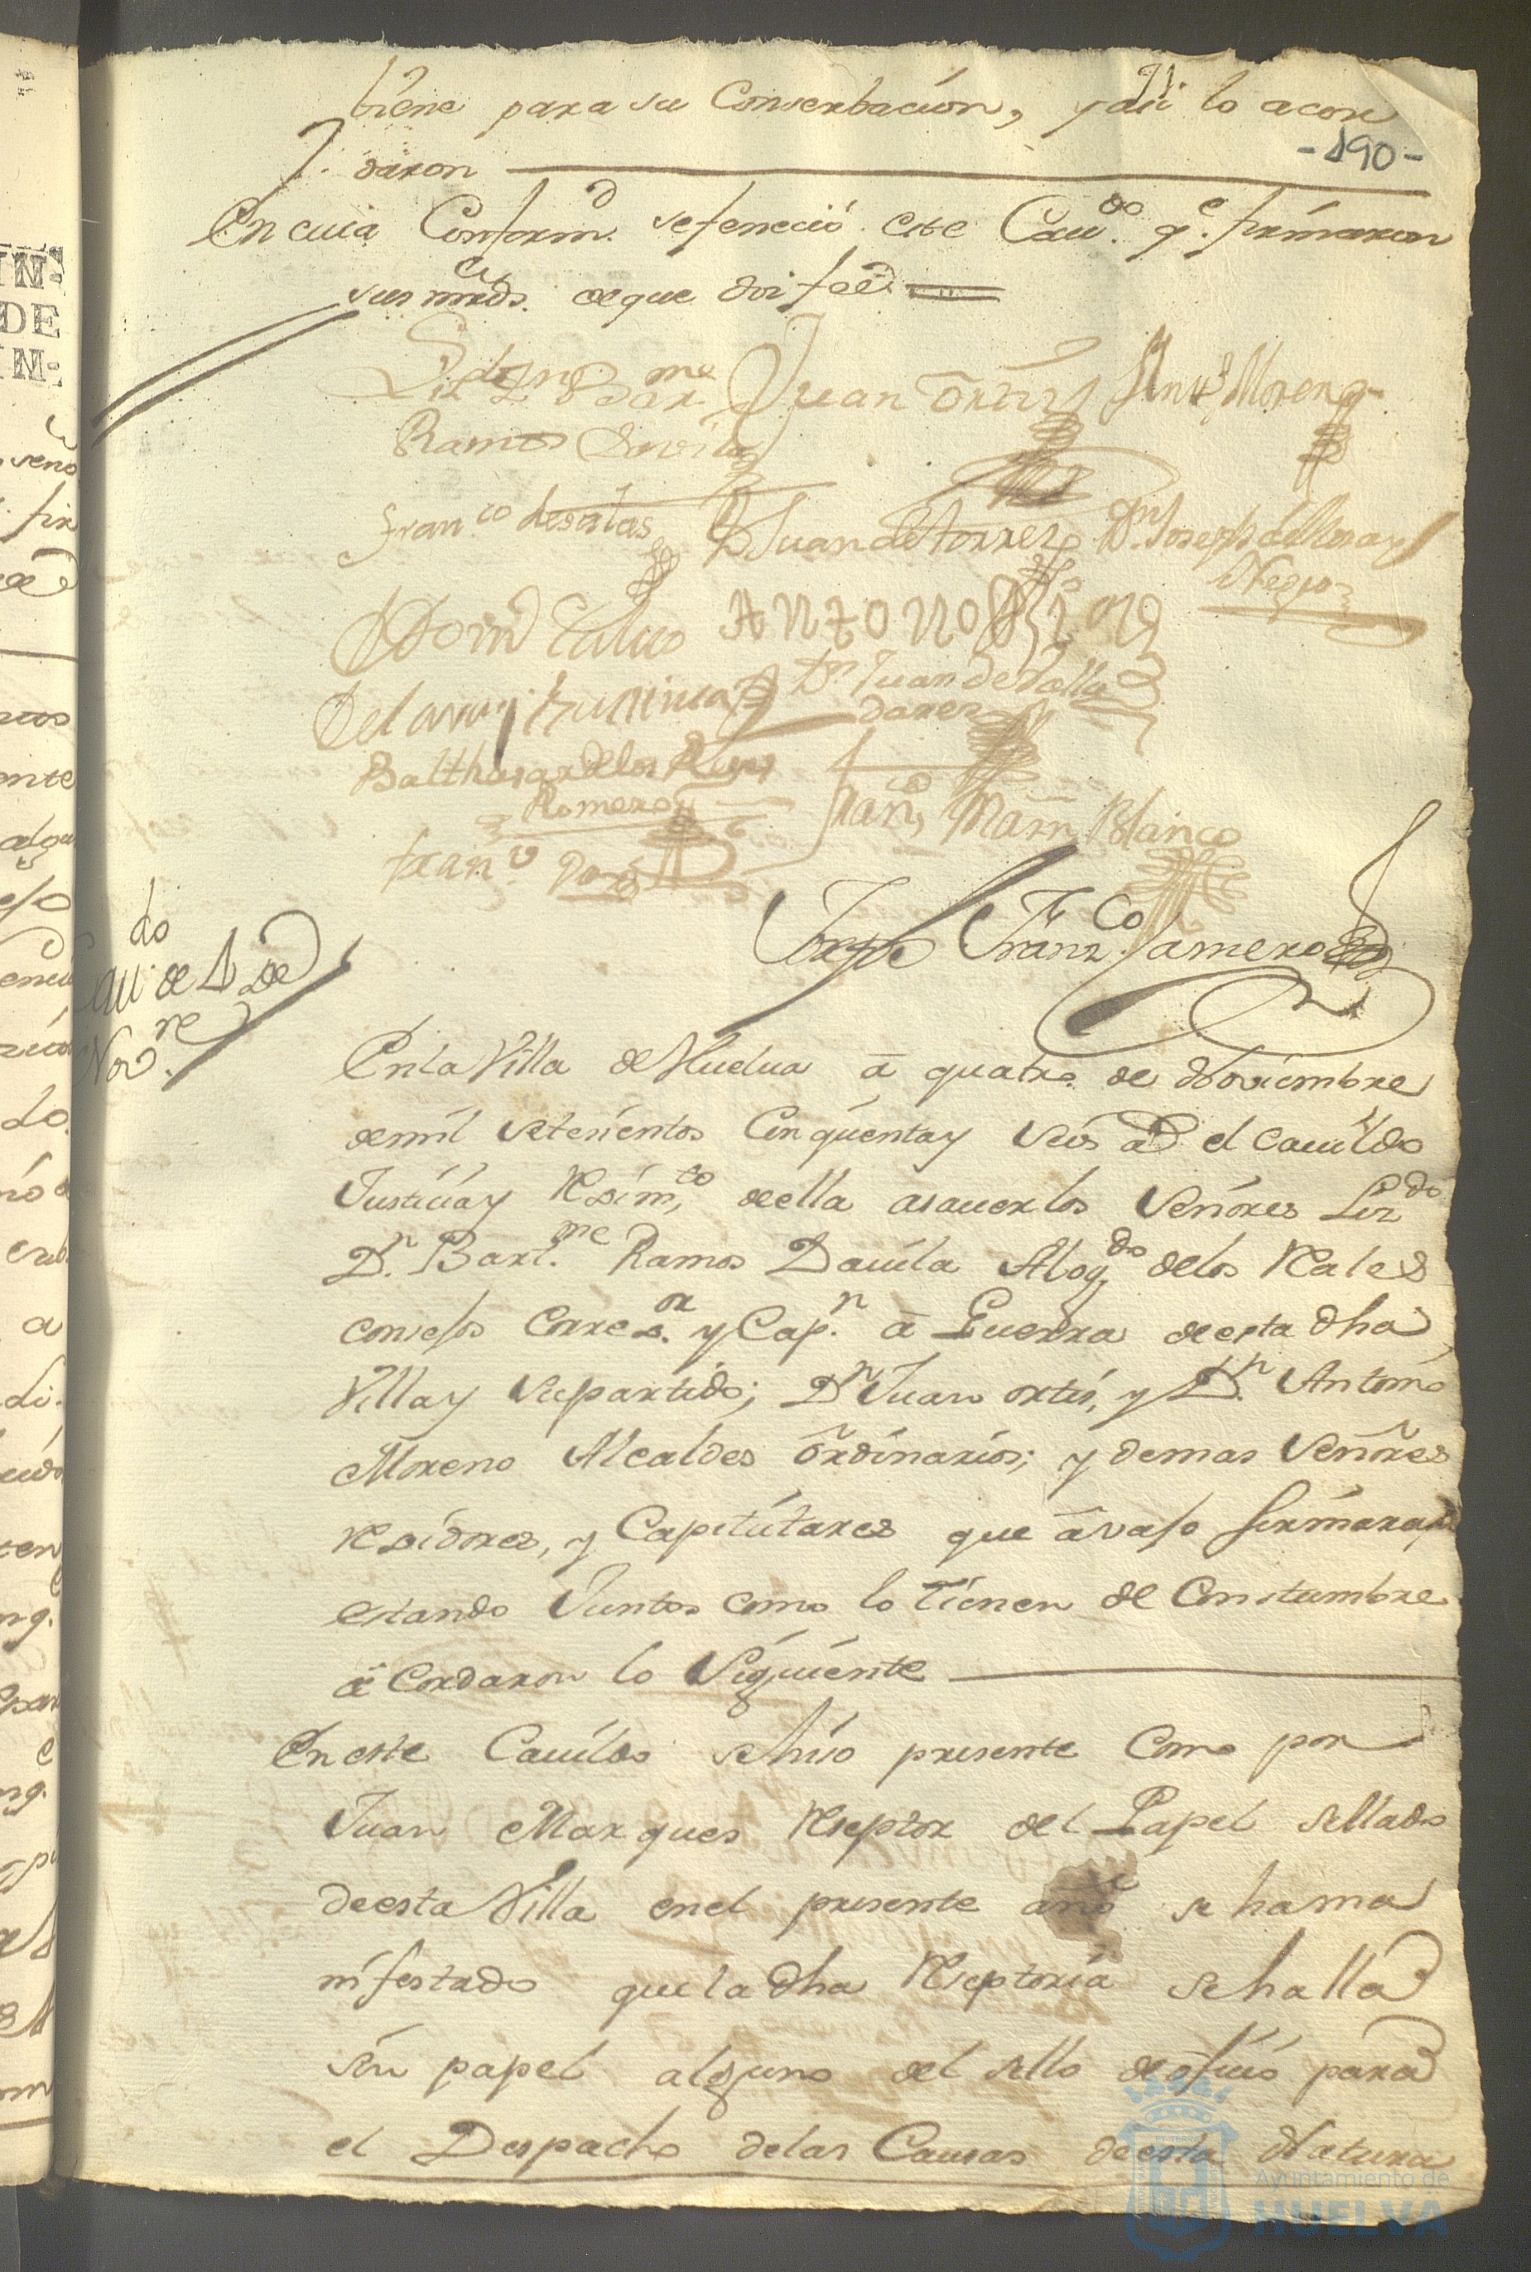 tiene para su Conserbacion, y asi lo acor
daron
-190-
En cuia Conform.d se feneció este Cau.do q.e firmaron
sus mrds. de que doi fee
Lizdo Dn Barme
Juan Ortiz
Anto Moreno
Ramos Davila
Fran.co de
D Juan de Torres
Dn. Joseph de
Negro
Balthasar de los Rios
Romero
Dn Juan de Valla
dares
Fran.co Marn Blanco
Fran.co
Jorge Franz.co Jamero
Cau.do de 4 de
Nov.re
En la Villa de Huelua ā quatro de Noviembre
de mil setesientos Cinquenta y seis ad el Cauildo
Justicia y Rexim.to de ella asauer los Señores Liz.do
D.n Bart.me Ramos Dauila Abog.do de los Reales
consejos Corre.or y Cap.n ā Guerra de esta dha
Villa y su partido; D.n Juan ortis, y D.n Antonio
Moreno Alcaldes ordinarios; y demas Señores
rexidores, y Capitulares que ā vajo firmaran
estando Juntos como lo tienen de Constumbre
ā Cordaron lo Siguiente
En este Cauildo se hiso presente Como por
Juan Marques Rseptor del Papel sellado
de esta Villa en el presente año se ha ma
nifestado que la dha Rseptoria se halla
sin papel alguno del sello de ofisio para
el Despacho de las Causas de esta Natura
Ayuntamiento de
HUELVA